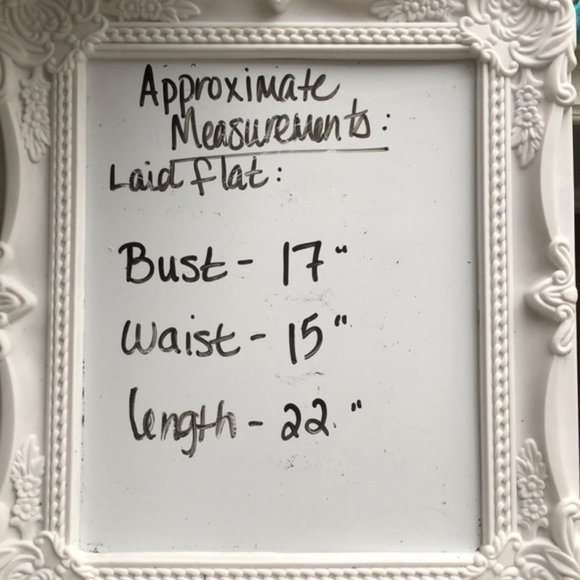 Approximate
Measurements:
Laid flat:
Bust - 17"
Waist - 15"
length - 22"